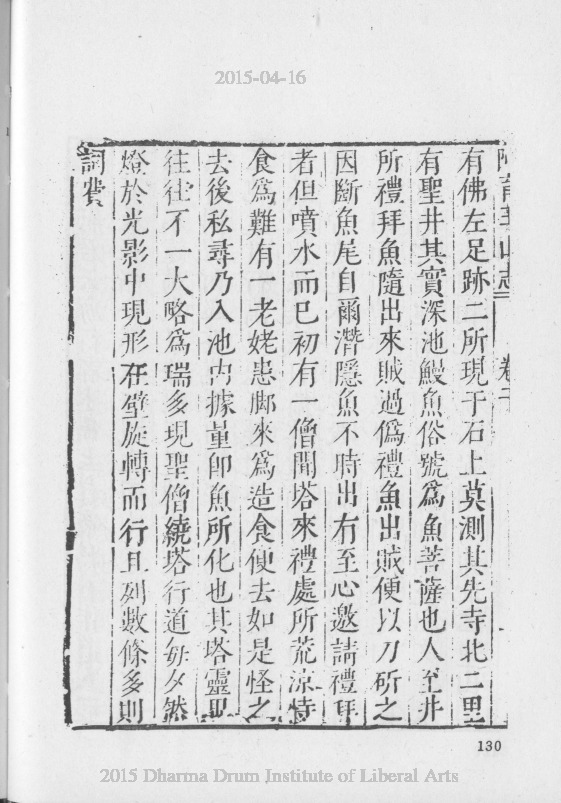 2015-04-16
阿育王山志 卷二
有佛左足跡二所現于石上莫測其先寺北二里
有聖井其實深池鰻魚俗號為魚菩薩也人至井
所禮拜魚隨出來賊過偽禮魚出賊便以刀斫之
因斷魚尾自爾潛隱魚不時出有至心邀請禮拜
者但噴水而已初有一僧聞塔來禮處所荒涼恃
食為難有一老姥患脚來為造食便去如是怪之
去後私尋乃入池內據量即魚所化也其塔靈
往往不一大略為瑞多現聖僧繞塔行道每夕然
燈於光影中現形在壁旋轉而行且列數條多則
詞費
130
2015 Dharma Drum Institute of Liberal Arts